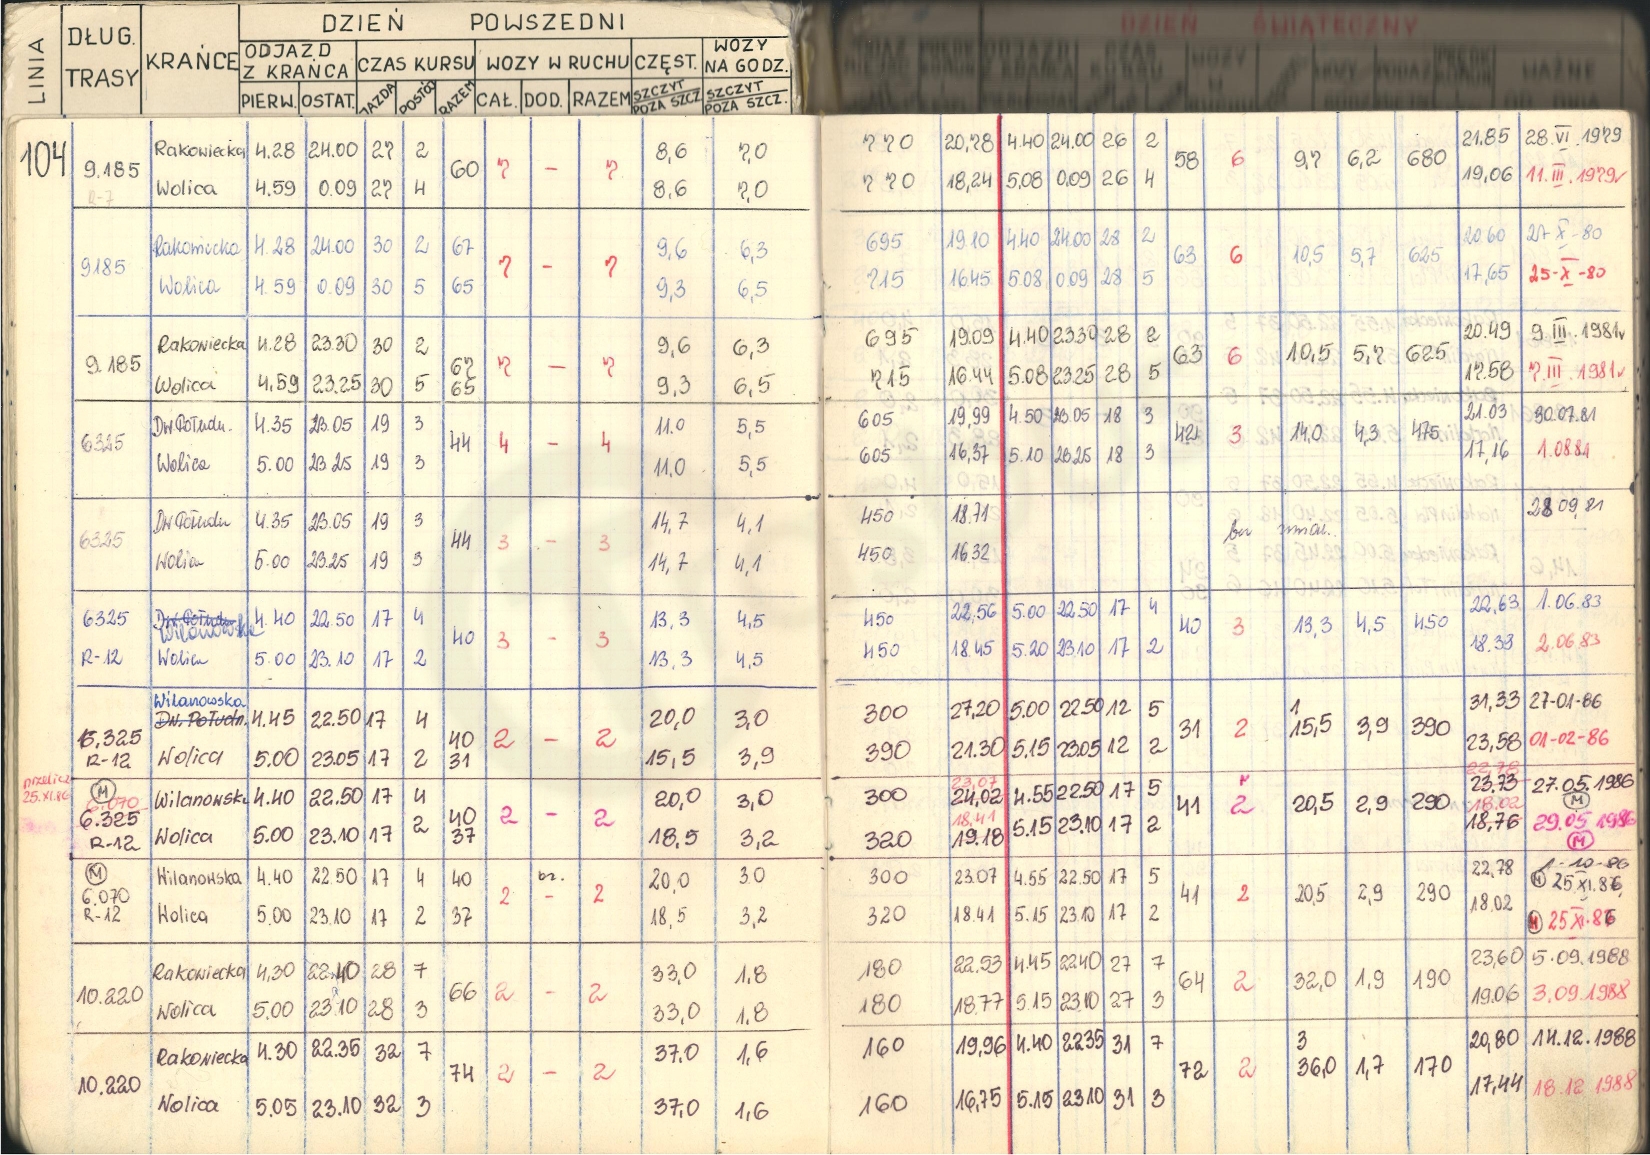 DZIEŃ POWSZEDNI
DZIEŃ ŚWIĄTECZNY
LINIA DŁUG. TRASY KRAŃCE ODJAZD Z KRAŃCA CZAS KURSU WOZY W RUCHU CZĘST. WOZY NA GODZ.
PIERW. OSTAT. JAZDA POSTÓJ RAZEM CAŁ. DOD. RAZEM SZCZYT POZA SZCZ. SZCZYT POZA SZCZ.
104
9.185 R-7 60 7 - 7 58 6 9,7 6,2 680
Rakowiecka 4.28 24.00 27 2 8,6 7,0 770 20,78 4.40 24.00 26 2 21.85 28.VI.1979
Wolica 4.59 0.09 27 4 8,6 7,0 770 18,24 5.08 0.09 26 4 19,06 11.III.1979
9185 7 - 7 63 6 10,5 5,7 625
Rakowiecka 4.28 24.00 30 2 67 9,6 6,3 695 19.10 4.40 24.00 28 2 20.60 27 X-80
Wolica 4.59 0.09 30 5 65 9,3 6,5 715 16.45 5.08 0.09 28 5 17,65 25-X-80
9.185 7 - 7 63 6 10,5 5,7 625
Rakowiecka 4.28 23.30 30 2 67 9,6 6,3 695 19.09 4.40 23.30 28 2 20.49 9.III.1981
Wolica 4.59 23.25 30 5 65 9,3 6,5 715 16.44 5.08 23.25 28 5 17.58 7.III.1981
6325 44 4 - 4 42 3 14,0 4,3 475
Dw Połudn. 4.35 23.05 19 3 11.0 5,5 605 19,99 4.50 23.05 18 3 21.03 30.07.81
Wolica 5.00 23 25 19 3 11,0 5,5 605 16,37 5.10 23.25 18 3 17,16 1.08 81
6325 44 3 - 3 bez zmian.
Dw Połudn 4.35 23.05 19 3 14,7 4,1 450 18.71 28 09,81
Wolica 5.00 23.25 19 3 14,7 4,1 450 16.32
6325 R-12 40 3 - 3 40 3 13,3 4,5 450
Dw. Połudn. Wilanowska 4.40 22.50 17 4 13,3 4,5 450 22,56 5.00 22.50 17 4 22,63 1.06.83
Wolica 5.00 23.10 17 2 13,3 4,5 450 18.45 5.20 23.10 17 2 18.33 2.06.83
6.325 R-12 2 - 2 31 2 15,5 3,9 390
Wilanowska
Dw. Połudn. 4.45 22.50 17 4 40 20,0 3,0 300 27,20 5.00 22.50 12 5 31,33 27-01-86
Wolica 5.00 23.05 17 2 31 15,5 3,9 390 21.30 5.15 23.05 12 2 23,58 01-02-86
przelicz 25.XI.86
M 6.070 6.325 R-12 2 - 2 41 2 20,5 2,9 290
23,07 22,78
Wilanowska 4.40 22.50 17 4 40 20,0 3,0 300 24,02 4.55 22.50 17 5 23,73 27.05.1986 M
18,41 18.02
Wolica 5.00 23.10 17 2 37 18,5 3,2 320 19.18 5.15 23.10 17 2 18,76 29.05 1986 M
M 6.070 R-12 2 - 2 41 2 20,5 2,9 290
Wilanowska 4.40 22.50 17 4 40 20,0 3.0 300 23.07 4.55 22.50 17 5 22,78 1-10-86 M 25 XI.86
Wolica 5.00 23.10 17 2 37 18,5 3,2 320 18.41 5.15 23.10 17 2 18.02 M 25 XI.86
10.220 66 2 - 2 64 2 32,0 1,9 190
Rakowiecka 4,30 22.40 28 7 33,0 1,8 180 22.53 4.45 22.40 27 7 23,60 5.09.1988
Wolica 5,00 23.10 28 3 33,0 1,8 180 18.77 5.15 23.10 27 3 19.06 3.09.1988
10.220 74 2 - 2 72 2 36,0 1,7 170
Rakowiecka 4.30 22.35 32 7 37.0 1,6 160 19,96 4.40 22.35 31 7 20,80 14.12.1988
Wolica 5.05 23.10 32 3 37,0 1,6 160 16,75 5.15 23.10 31 3 17,44 18.12 1988